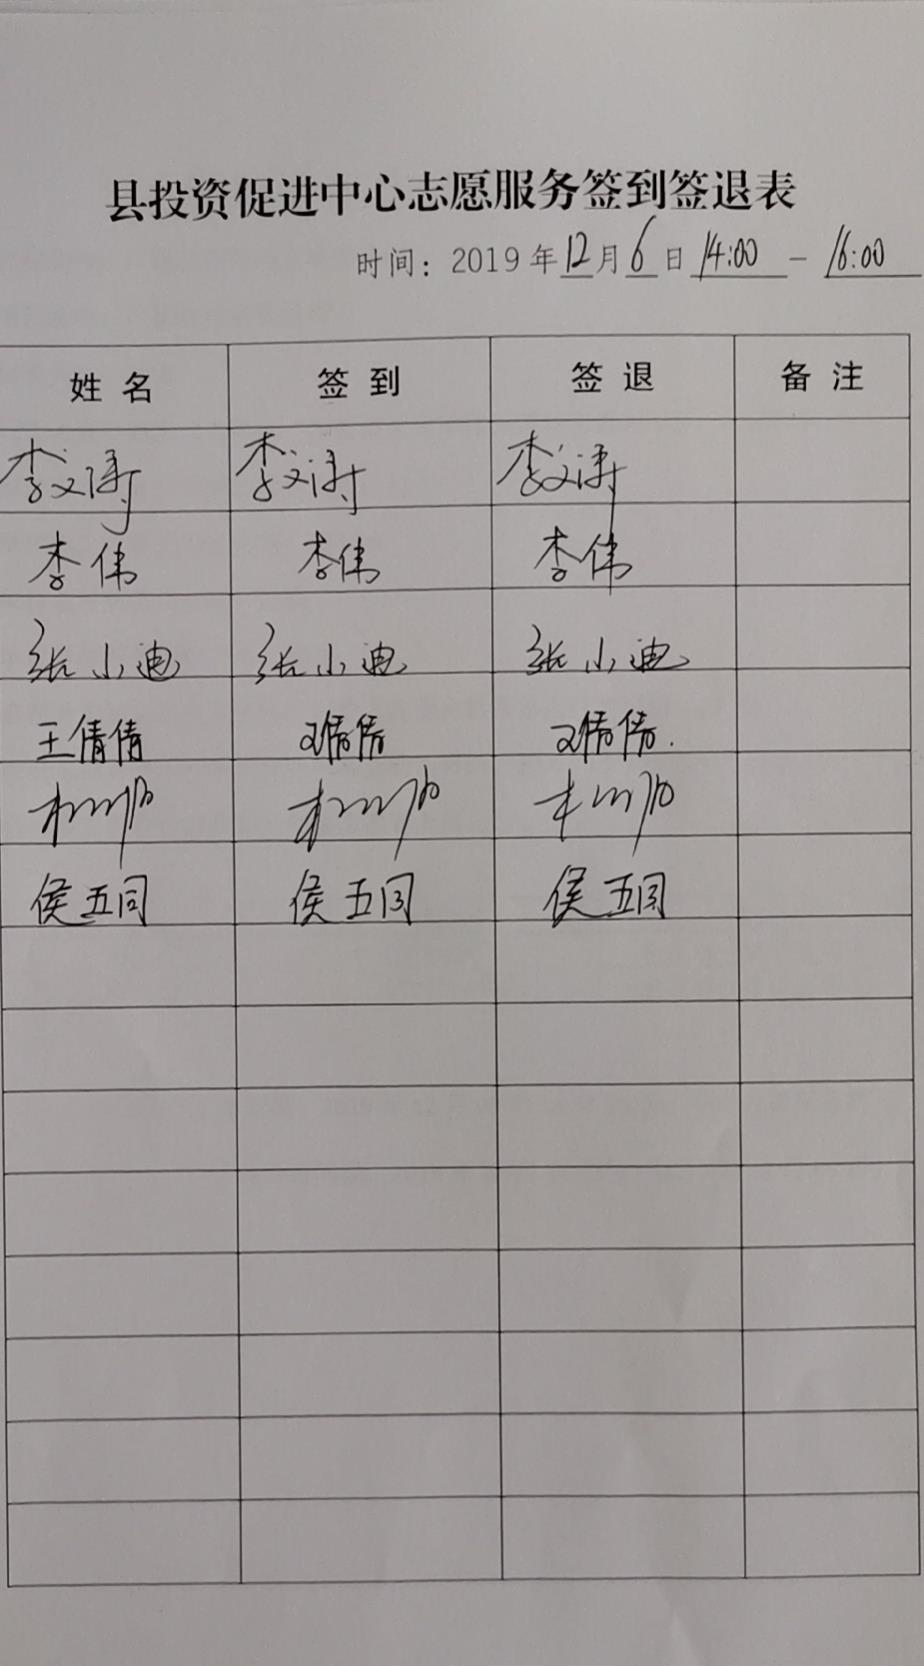 县投资促进中心志愿服务签到签退表
时间：2019年12月6日 14:00 － 16:00
姓名 签到 签退 备注
李文涛 李文涛 李文涛
李伟 李伟 李伟
张小迪 张小迪 张小迪
王倩倩 王倩倩 王倩倩
侯五同 侯五同 侯五同